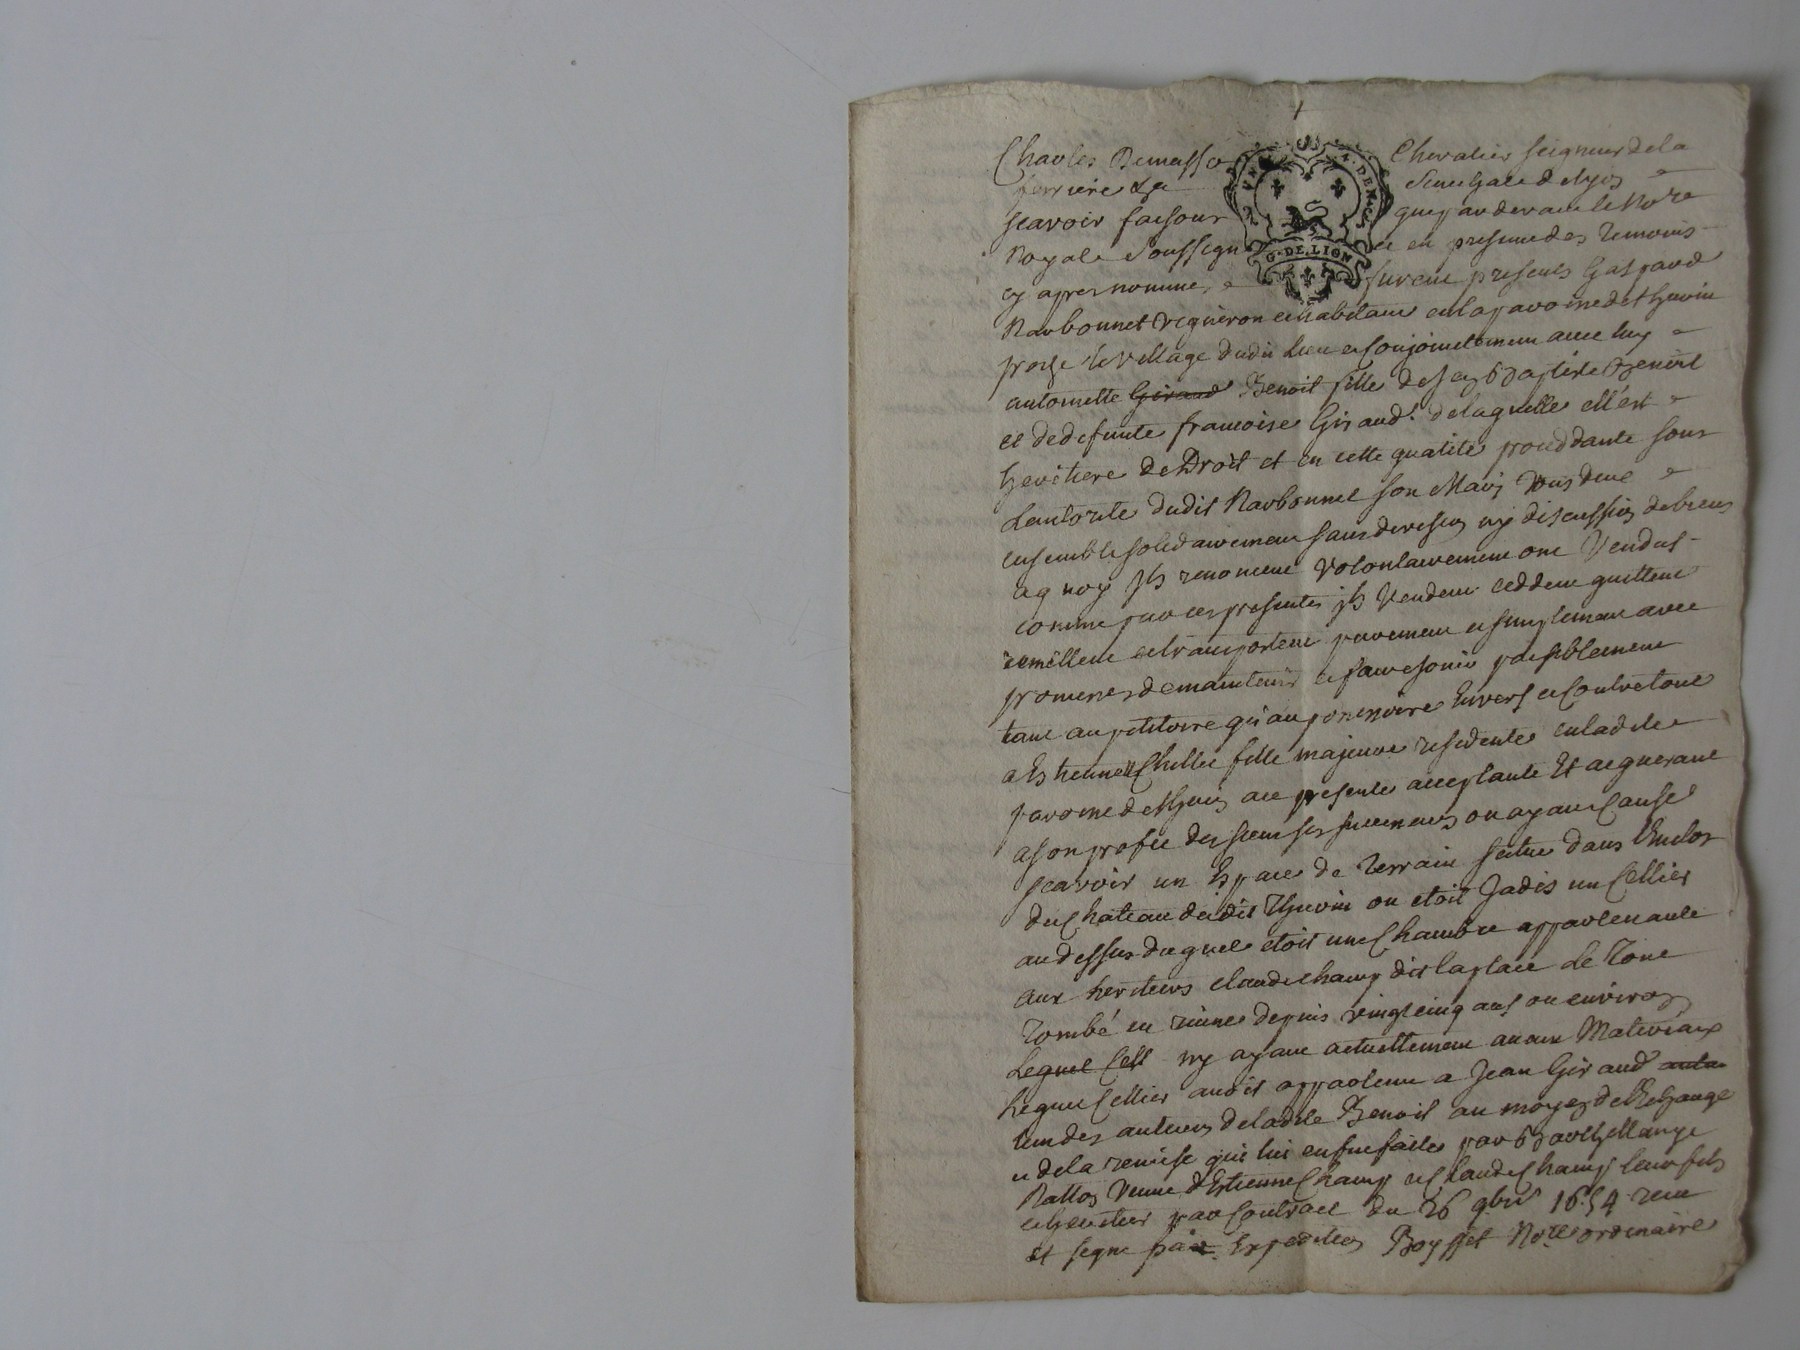 Charles Demasso Chevalier seigneur dela
ferriere &a Senechal de Lyon
scavoir faisons que par devant le No.re
Royale soussigné et en presence des temoins
cy apres nommes furent presents Gaspard
G. DE LION
Narbonnet vigneron et habitant en la paroisse de Thurin
proche le village dudit lieu et Conjointement avec luy
antoinette Giraud Benoit fille de feu Baptiste Benoit
et de defunte francoise Giraud delaquelle ell'est
heritiere de Droit et en cette qualité proceddante sous
Lautorité dudit Narbonnet son Mary
ensemble solidairement sans division ny discussion de biens
a quoy jls renoncent volontairement ont Vendus
comme par ces presentes jls Vendent ceddent quittent
remettent et transportent purement et simplement avec
promesses de maintenir et faire jouir paisiblement
tant au petitoire qu'au possessoire Envers et Contre tous
a Estiennette Chillet fille majeure residente en ladite
paroisse de Thurin ace presente acceptante Et acquerant
a son profit des siens ses successeurs ou ayant Cause
scavoir un Espace de terrain scitué dans l'Enclos
du Chateau dudit Thurin ou etoit Jadis un Cellier
au dessus duquel etoit une Chambre appartenante
aux heritiers claude champ dit laplace Le Tout
Tombé en ruines depuis vingt cinq ans ou environ
Lequel Cell ny ayant actuellement aucun Materiaux
Lequel Cellier avoit appartenu a Jean Giraud
l'un des auteurs de ladite Benoit au moyen de l'Echange
et de la remise qui lui en fut faittes par
veuve d'Estienne Champ et Claude Champ leur fils
et heritier par Contract du 26 9bre 1654 receu
et signé par Expedition Boysset No.re ordinaire